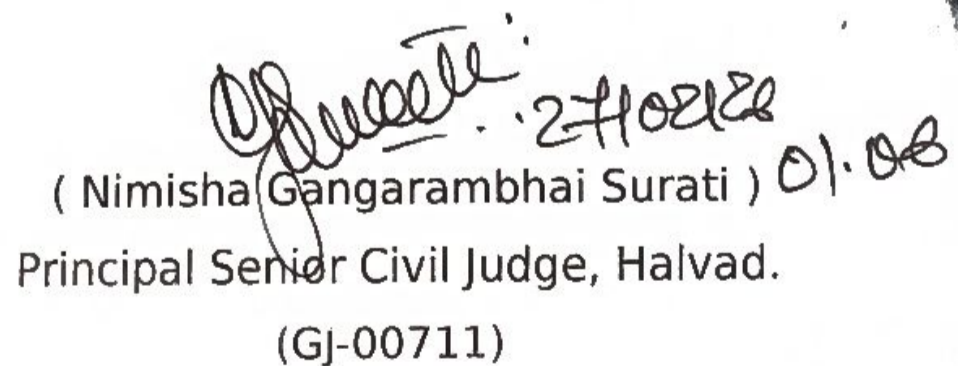 27/02/26
( Nimisha Gangarambhai Surati ) 01.08
Principal Senior Civil Judge, Halvad.
(GJ-00711)